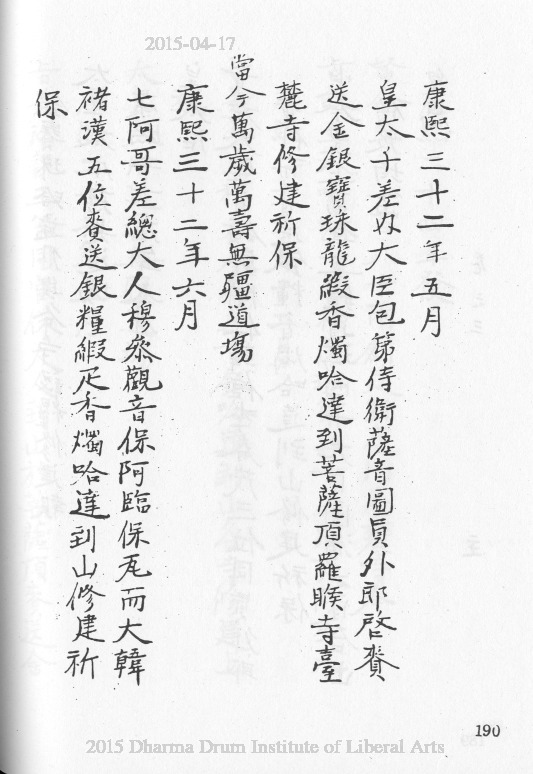 2015-04-17
康熙三十二年五月
皇太子差內大臣包第侍衛薩音圖員外郎啓賚
送金銀寶珠龍緞香燭哈達到菩薩頂羅睺寺臺
麓寺修建祈保
當今萬歲萬壽無疆道場
康熙三十二年六月
七阿哥差總大人穆參觀音保阿臨保瓦而大韓
褚漢五位賚送銀糧緞疋香燭哈達到山修建祈
保
190
2015 Dharma Drum Institute of Liberal Arts